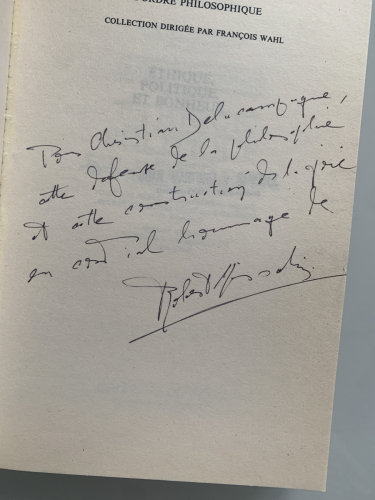 ORDRE PHILOSOPHIQUE
COLLECTION DIRIGÉE PAR FRANÇOIS WAHL
ÉTHIQUE,
POLITIQUE
ET BONHEUR
Pour Christian Delacampagne,
cette défense de la philosophie
et cette construction de la joie
en cordial hommage de
Robert Misrahi